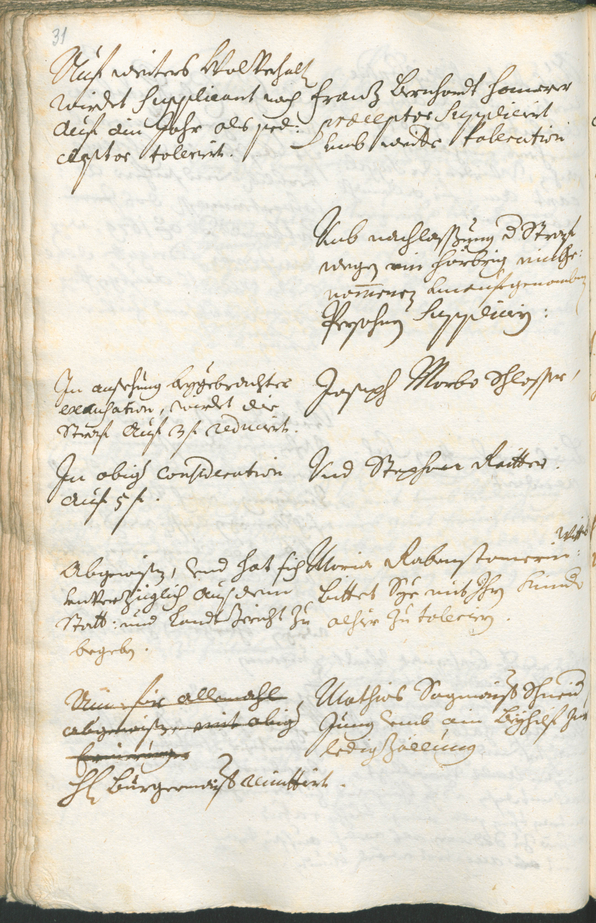 31
Auf weiters Wollverhalt
wirdet Supplicant noch
auf ain Jahr als præ:
ceptor tolerirt.
Franz Bernhardt Hamerer
præceptor Supplicirt
umb weitere Toleration
Umb nachlassung d Straf
wegen in Hörbrig
aufgenommenen
Persohn Suppliciren:
In ansehung beygebrachter
excusation, wirdet die
Straf auf 3 f reducirt.
Joseph Morbe Schlosser,
In obig consideration
auf 5 f.
Und Stephan Reitter.
Abgewisen, und hat sich
unverzüglich aus dem
Statt: und Landt Gericht zu
begeben.
Maria Rabenstainerin Wittib:
bittet Sye mit Ihren Kinder
alhier zu toleriren.
Nun für allemahl
abgewisen mit obig
Erinnerung
H Burgermaister remittirt.
Mathias Sagmaister Schneid
Jung umb ain Beyhilf zur
ledigzöllung